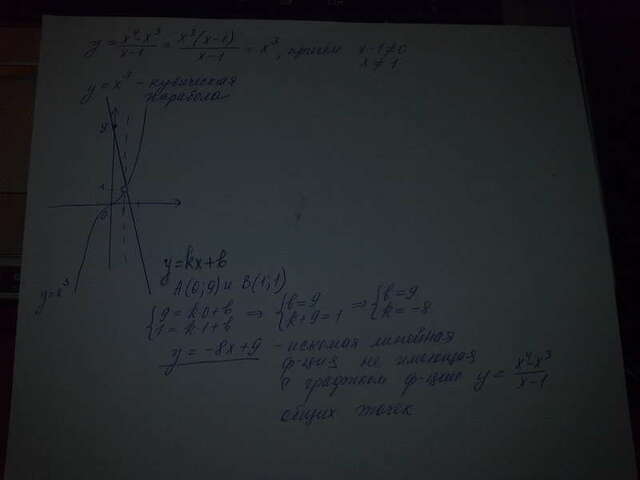 y = x⁴-x³/x-1 = x³(x-1)/x-1 = x³, причем x-1≠0
x≠1
y = x³ - кубическая
парабола
9
1
0
y=x³
y=kx+b
A(0;9) и B(1;1)
{9=k·0+b ⇒ {b=9 ⇒ {b=9
{1=k·1+b {k+9=1 {k=-8
y=-8x+9 - искомая линейная
ф-ция, не имеющая
с графиком ф-ции y = x⁴-x³/x-1
общих точек